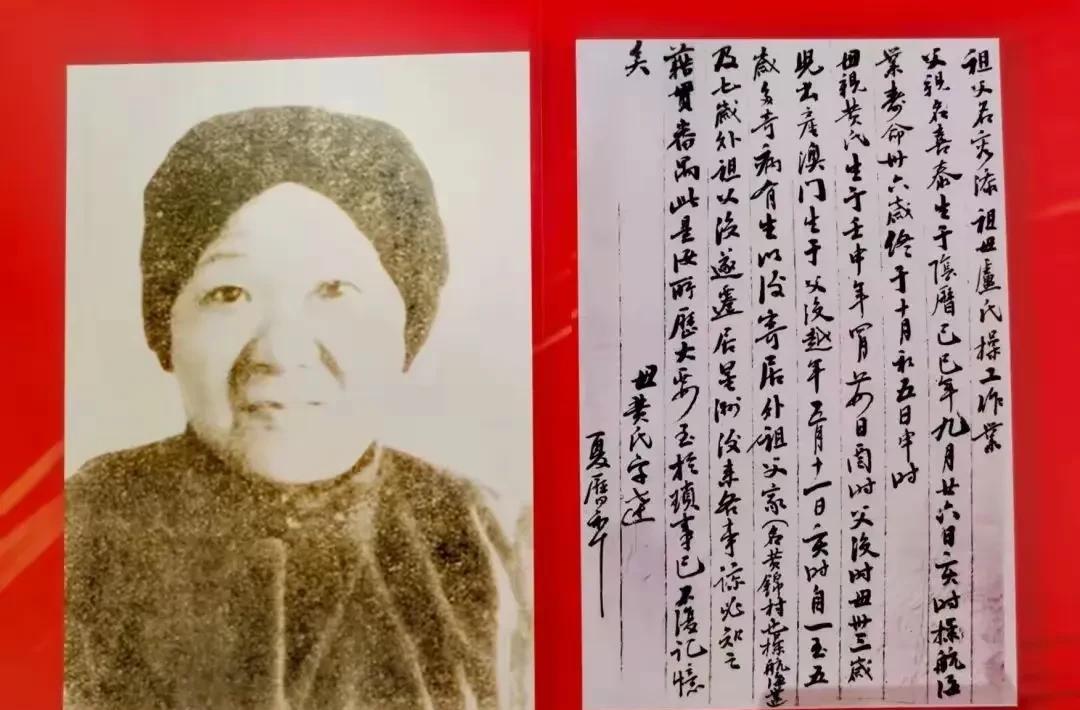 祖父名秀添祖母盧氏操工作業
父親名喜泰生于陰曆己巳年九月廿六日亥时操航海
業寿命卅六歲终于十月初五日申时
母親黄氏生于壬申年日酉时父没时母卅三歲
児出産澳门生于父没越年五月十一日亥时自一至五
歲多奇病有生以後寄居外祖父家(名黄錦村也操航海業
及七歲外祖父没遂遷居星洲後来各事諒必知之
藉貫番禺此是汝所歷大要至於瑣事已不復記憶
矣
母黄氏字
夏曆